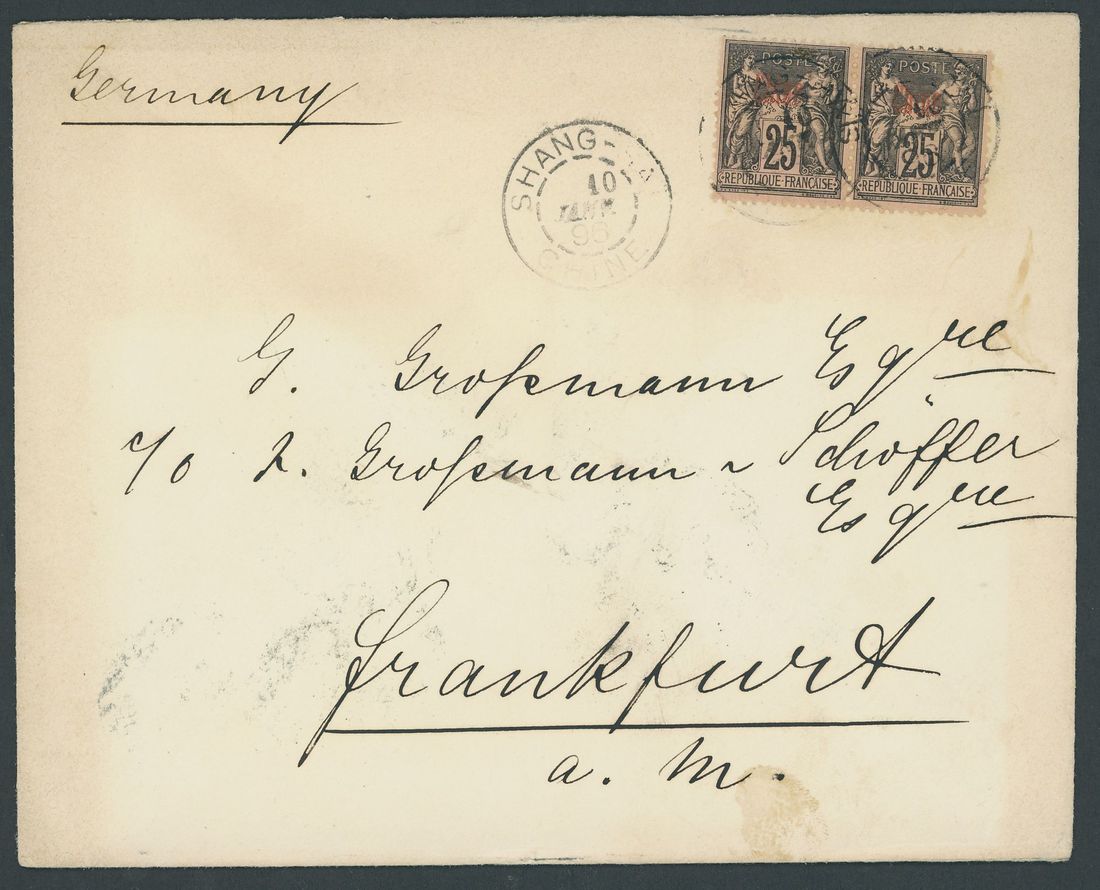 Germany
POSTE
25
REPUBLIQUE FRANÇAISE
POSTE
25
REPUBLIQUE FRANÇAISE
SHANG-HAI
10
JANV.
96
CHINE
G. Großmann Esqre
c/o L. Großmann & Schöffer
Esqre
Frankfurt
a. M.